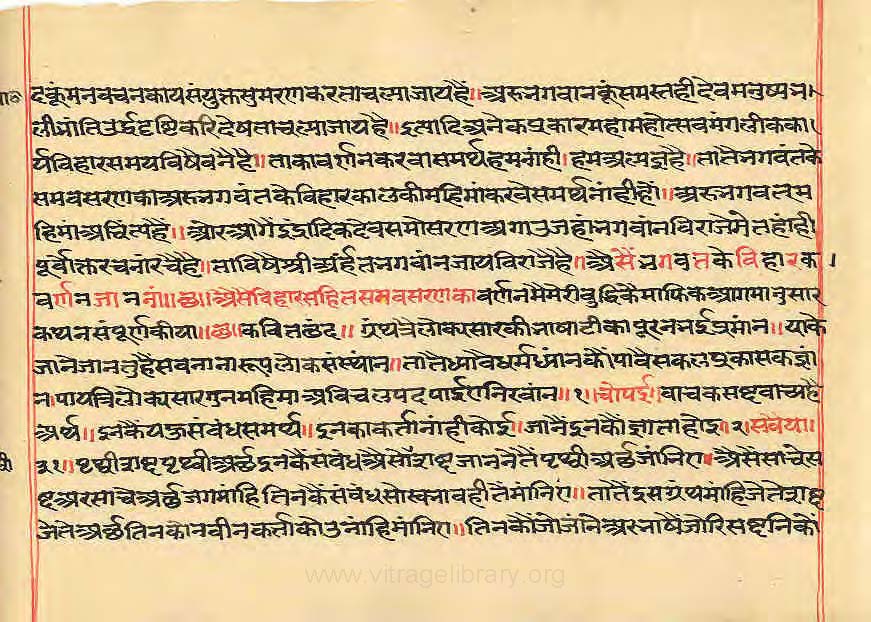 दकूंमनवचनकायसंयुक्तसुमरणकरताचल्याजायहैं॥अरुभगवानकूंसमस्तहीदेवमनुष्यभ।
लीभांतिउर्द्धदृष्टिकरिदेषताचल्याजायहै॥इत्यादिअनेकप्रकारमहामहोत्सवमंगलीकका।
र्यविहारसमयविषैवनैहै॥ताकावर्णनकरवासमर्थहमनांही।हमअल्पज्ञहै॥तातैभगवंतके
समवसरणकाअरुभगवंतकेविहारकालकीमहिमांकरवेसमर्थनांहीहों॥अरुभगवतम
हिमांअचिंत्यहैं॥ओरआगैंइंद्रादिकदेवसमोसरणअगाउजहांभगवांनविराजेगेतहांही
पूर्वोक्तरचनांरचैहै॥ताविषैश्रीअर्हंतभगवांनजायविराजैहै॥अैसैंभगवंतकेविहारक।
वर्णनजाननां॥छ॥अैसैविहारसहितसमवसरणकावर्णनमैमेरीवुद्धिकैमाफिकआगमानुसार
कथनसंपूर्णकीया॥छ॥कवित्तछंद॥ग्रंथत्रैलोक्यसारकीभाषाटीकापूरनभईप्रमांन॥याके
जानेजानतुहैसवनानारूपलोकसंस्थांन॥तातैध्यावैधर्मध्यांनकौंपावैसकलप्रकासकज्ञां
न।पायत्रिलोक्यसारगुनमहिमाअविचलपदपाईएनिरवांन॥१॥चौपई॥वाचकसष्टवाच्यहै
अर्थ॥इनकैयऊसंवंधसमर्थ॥इनकाकर्तानांहीकोई॥जानैंइनकौंज्ञाताहोइ॥२॥सवैया॥
३१॥पृथ्वीशष्टपृथ्वीअर्छइनकैसंवंधअैसौंशष्टजाननेतैंपृथ्वीअर्छजांनिए॥अैसैसाचेस
ष्टअरसाचेअर्छजगमांहितिनकैसंवंधसोस्वभावहीतैमांनिएं॥तातैंइसग्रंथमांहिजेतेशष्ट
जेतेअर्छतिनकौनवीनकर्ताकोउनांहिमांनिए॥तिनकौंजोजांनेअरभाषैजोरिसष्टनिकों
www.vitragelibrary.org